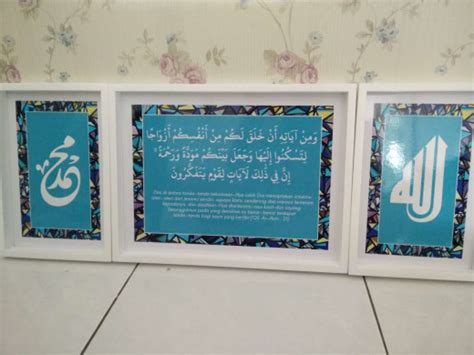 الله
وَمِنْ آيَاتِهِ أَنْ خَلَقَ لَكُمْ مِنْ أَنْفُسِكُمْ أَزْوَاجًا
لِتَسْكُنُوا إِلَيْهَا وَجَعَلَ بَيْنَكُمْ مَوَدَّةً وَرَحْمَةً ۚ
إِنَّ فِي ذَلِكَ لَآيَاتٍ لِقَوْمٍ يَتَفَكَّرُونَ
Dan di antara tanda-tanda kekuasaan-Nya ialah Dia menciptakan untukmu
isteri-isteri dari jenismu sendiri, supaya kamu cenderung dan merasa tenteram
kepadanya, dan dijadikan-Nya diantaramu rasa kasih dan sayang.
Sesungguhnya pada yang demikian itu benar-benar terdapat
tanda-tanda bagi kaum yang berfikir. (QS. Ar-Rum : 21)
محمد